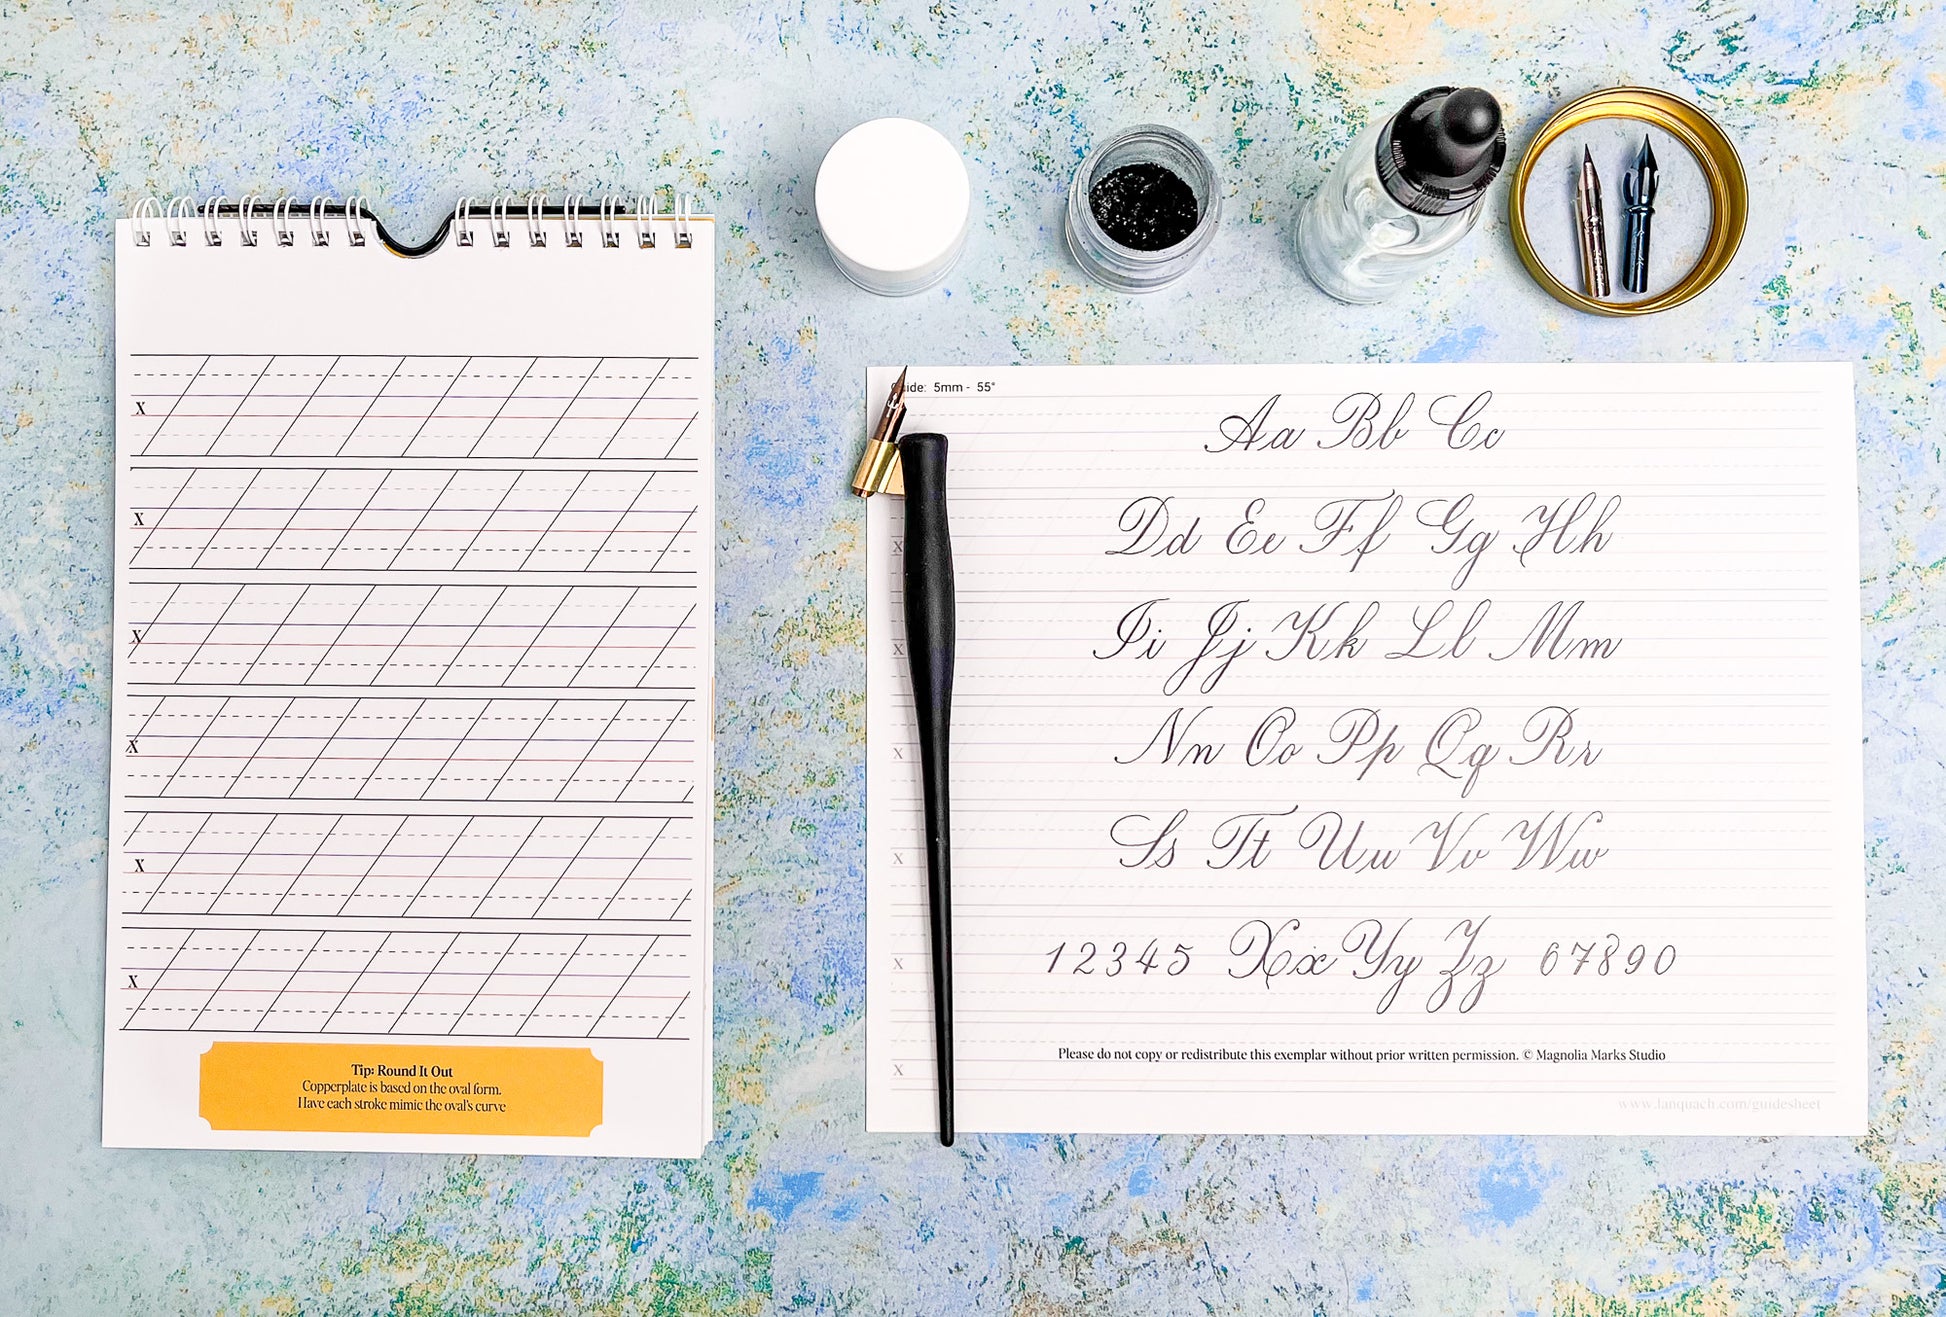 x
x
x
x
x
x
Tip: Round It Out
Copperplate is based on the oval form.
Have each stroke mimic the oval's curve
5mm - 55°
Aa Bb Cc
x
Dd Ee Ff Gg Hh
x
Ii Jj Kk Ll Mm
x
Nn Oo Pp Qq Rr
x
Ss Tt Uu Vv Ww
x
12345 Xx Yy Zz 67890
Please do not copy or redistribute this exemplar without prior written permission. © Magnolia Marks Studio
x
www.lanquach.com/guidesheet